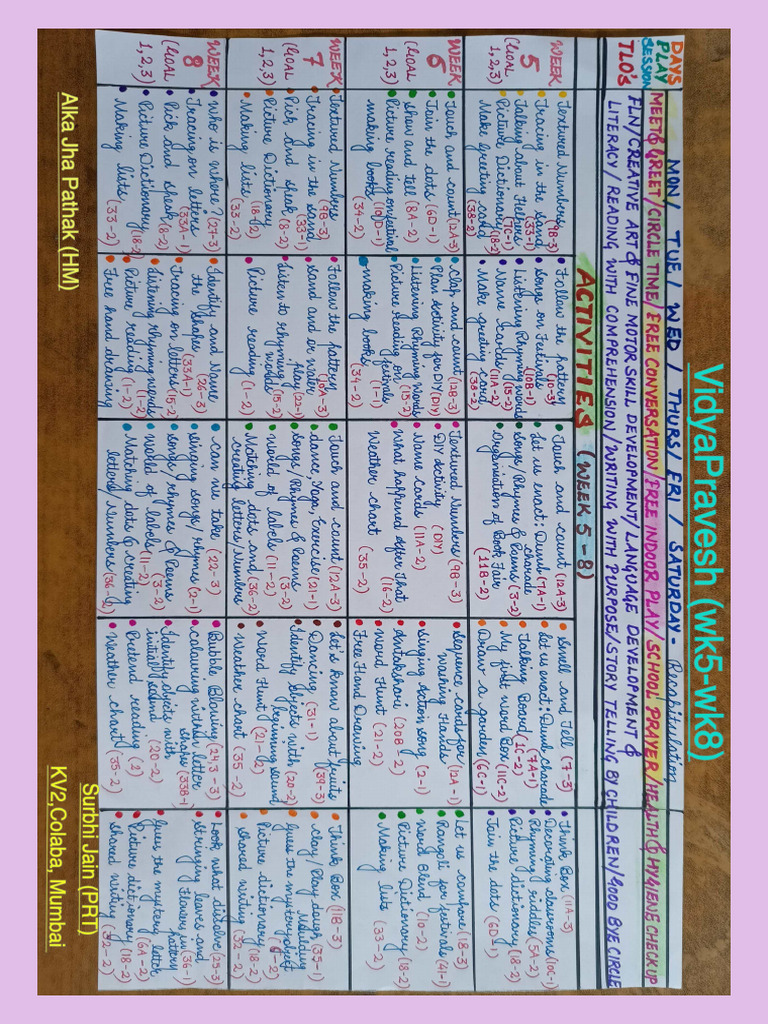 VidyaPravesh (wk5-wk8)
DAYS MON/ TUE/ WED/ THURS/ FRI/ SATURDAY- Recapitulation
PLAY SESSION MEET & GREET/CIRCLE TIME/FREE CONVERSATION/FREE INDOOR PLAY/SCHOOL PRAYER/HEALTH & HYGIENE CHECK UP
TLO's FLN/CREATIVE ART & FINE MOTOR SKILL DEVELOPMENT/LANGUAGE DEVELOPMENT &
LITERACY/READING WITH COMPREHENSION/WRITING WITH PURPOSE/STORY TELLING BY CHILDREN/GOOD BYE CIRCLE
ACTIVITIES (WEEK 5-8)
WEEK
5
(GOAL
1,2,3)
Textured Numbers (9B-3)
Tracing in the sand (33-1)
Talking about Festivals (7C-1)
Picture Dictionary (18-2)
Make greeting card (38-2)
Follow the pattern (10-3)
Songs on Festivals (10B-1)
Listening Rhyming words (15-2)
Name cards (11A-2)
Make greeting card (38-2)
Touch and count (12A-3)
Let us enact: Dumb charade (7A-1)
Songs/Rhymes & Poems (3-2)
Organisation of Book Fair (11B-2)
Smell and Tell (7-3)
Let us enact: Dumb charade (7A-1)
Talking Board (1C-2)
My first Word Box (11C-2)
Draw a garden (6C-1)
Think Box (11A-3)
Decorating classrooms (10C-1)
Rhyming riddles (5A-2)
Picture dictionary (18-2)
Join the dots (6D-1)
WEEK
6
(GOAL
1,2,3)
Touch and count (12A-3)
Join the dots (6D-1)
Show and tell (8A-2)
Picture reading on festival (10D-1)
making books (34-2)
Clap and count (12B-3)
Plan activity for DIY (DIY)
Listening Rhyming Words (15-2)
Picture Reading on festivals (1-1)
making books (34-2)
Textured Numbers (9B-3)
DIY activity (DIY)
Name cards (11A-2)
What happened after That (16-2)
Weather chart (35-2)
Sequence cards for Washing Hands (12A-1)
Singing Action song (2-1)
Antakshari (20B-2)
Word Hunt (21-2)
Free Hand Drawing
Let us compare (18-3)
Rangoli for festivals (41-1)
Word Blend (10-2)
Picture Dictionary (18-2)
Making lists (33-2)
WEEK
7
(GOAL
1,2,3)
Textured Numbers (9B-3)
Tracing in the sand (33-1)
Pick and speak (8-2)
Picture Dictionary (18-2)
Making lists (33-2)
Follow the pattern (10A-3)
Sand and or water play (22-1)
Listen to rhyming words (15-2)
Picture reading (1-2)
Touch and count (12A-3)
dance, Yoga, Exercise (21-1)
songs/Rhymes & Poems (3-2)
World of labels (11-2)
Matching dots and (36-2)
creating letters/Numbers
Let's know about fruits (39-3)
Dancing (31-1)
Identify objects with beginning sound (20-2)
Word Hunt (21-2)
Weather chart (35-2)
Think Box (11B-3)
Clay/Play dough Moulding (35-1)
Guess the mystery object (6-2)
Picture dictionary (18-2)
Shared writing (32-2)
WEEK
8
(GOAL
1,2,3)
Who is where? (21-3)
Tracing on letters (33A-1)
Pick and speak (8-2)
Picture Dictionary (18-2)
Making lists (33-2)
Identify and Name the shapes (26-3)
Tracing on letters (33A-1)
Listening rhyming words (15-2)
Picture reading (1-2)
Free hand drawing
can me take (22-3)
singing songs/rhymes (2-1)
songs/rhymes & Poems (3-2)
World of labels (11-2)
Matching dots & creating
letters/Numbers (36-2)
Bubble Blowing (24,3-3)
colouring within letter shapes (33B-1)
Identify objects with initial sound (20-2)
Pretend reading (2)
Weather chart (35-2)
Look what dissolve (25-3)
Stringing leaves and Flowers in pattern (36-1)
Guess the mystery letter (6A-2)
Picture dictionary (18-2)
Shared writing (32-2)
Alka Jha Pathak (HM)
Surbhi Jain (PRT)
KV2,Colaba, Mumbai